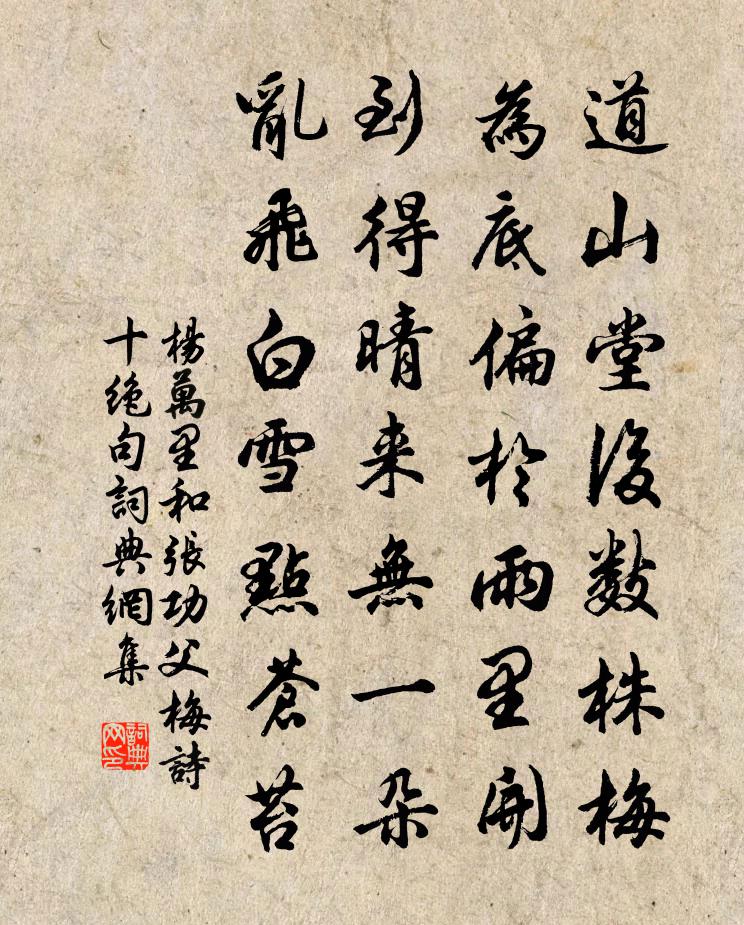 道山堂後數株梅
為底偏於雨里開
到得晴来無一朵
亂飛白雪點蒼苔
楊萬里和張功父梅詩
十絶句詞典網集
詞典网印